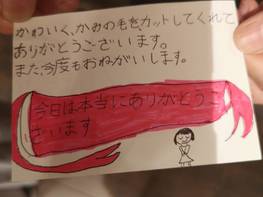 かわいく、かみの毛をカットしてくれて
ありがとうございます。
また、今度もおねがいします。
今日は本当にありがとうご
ざいます